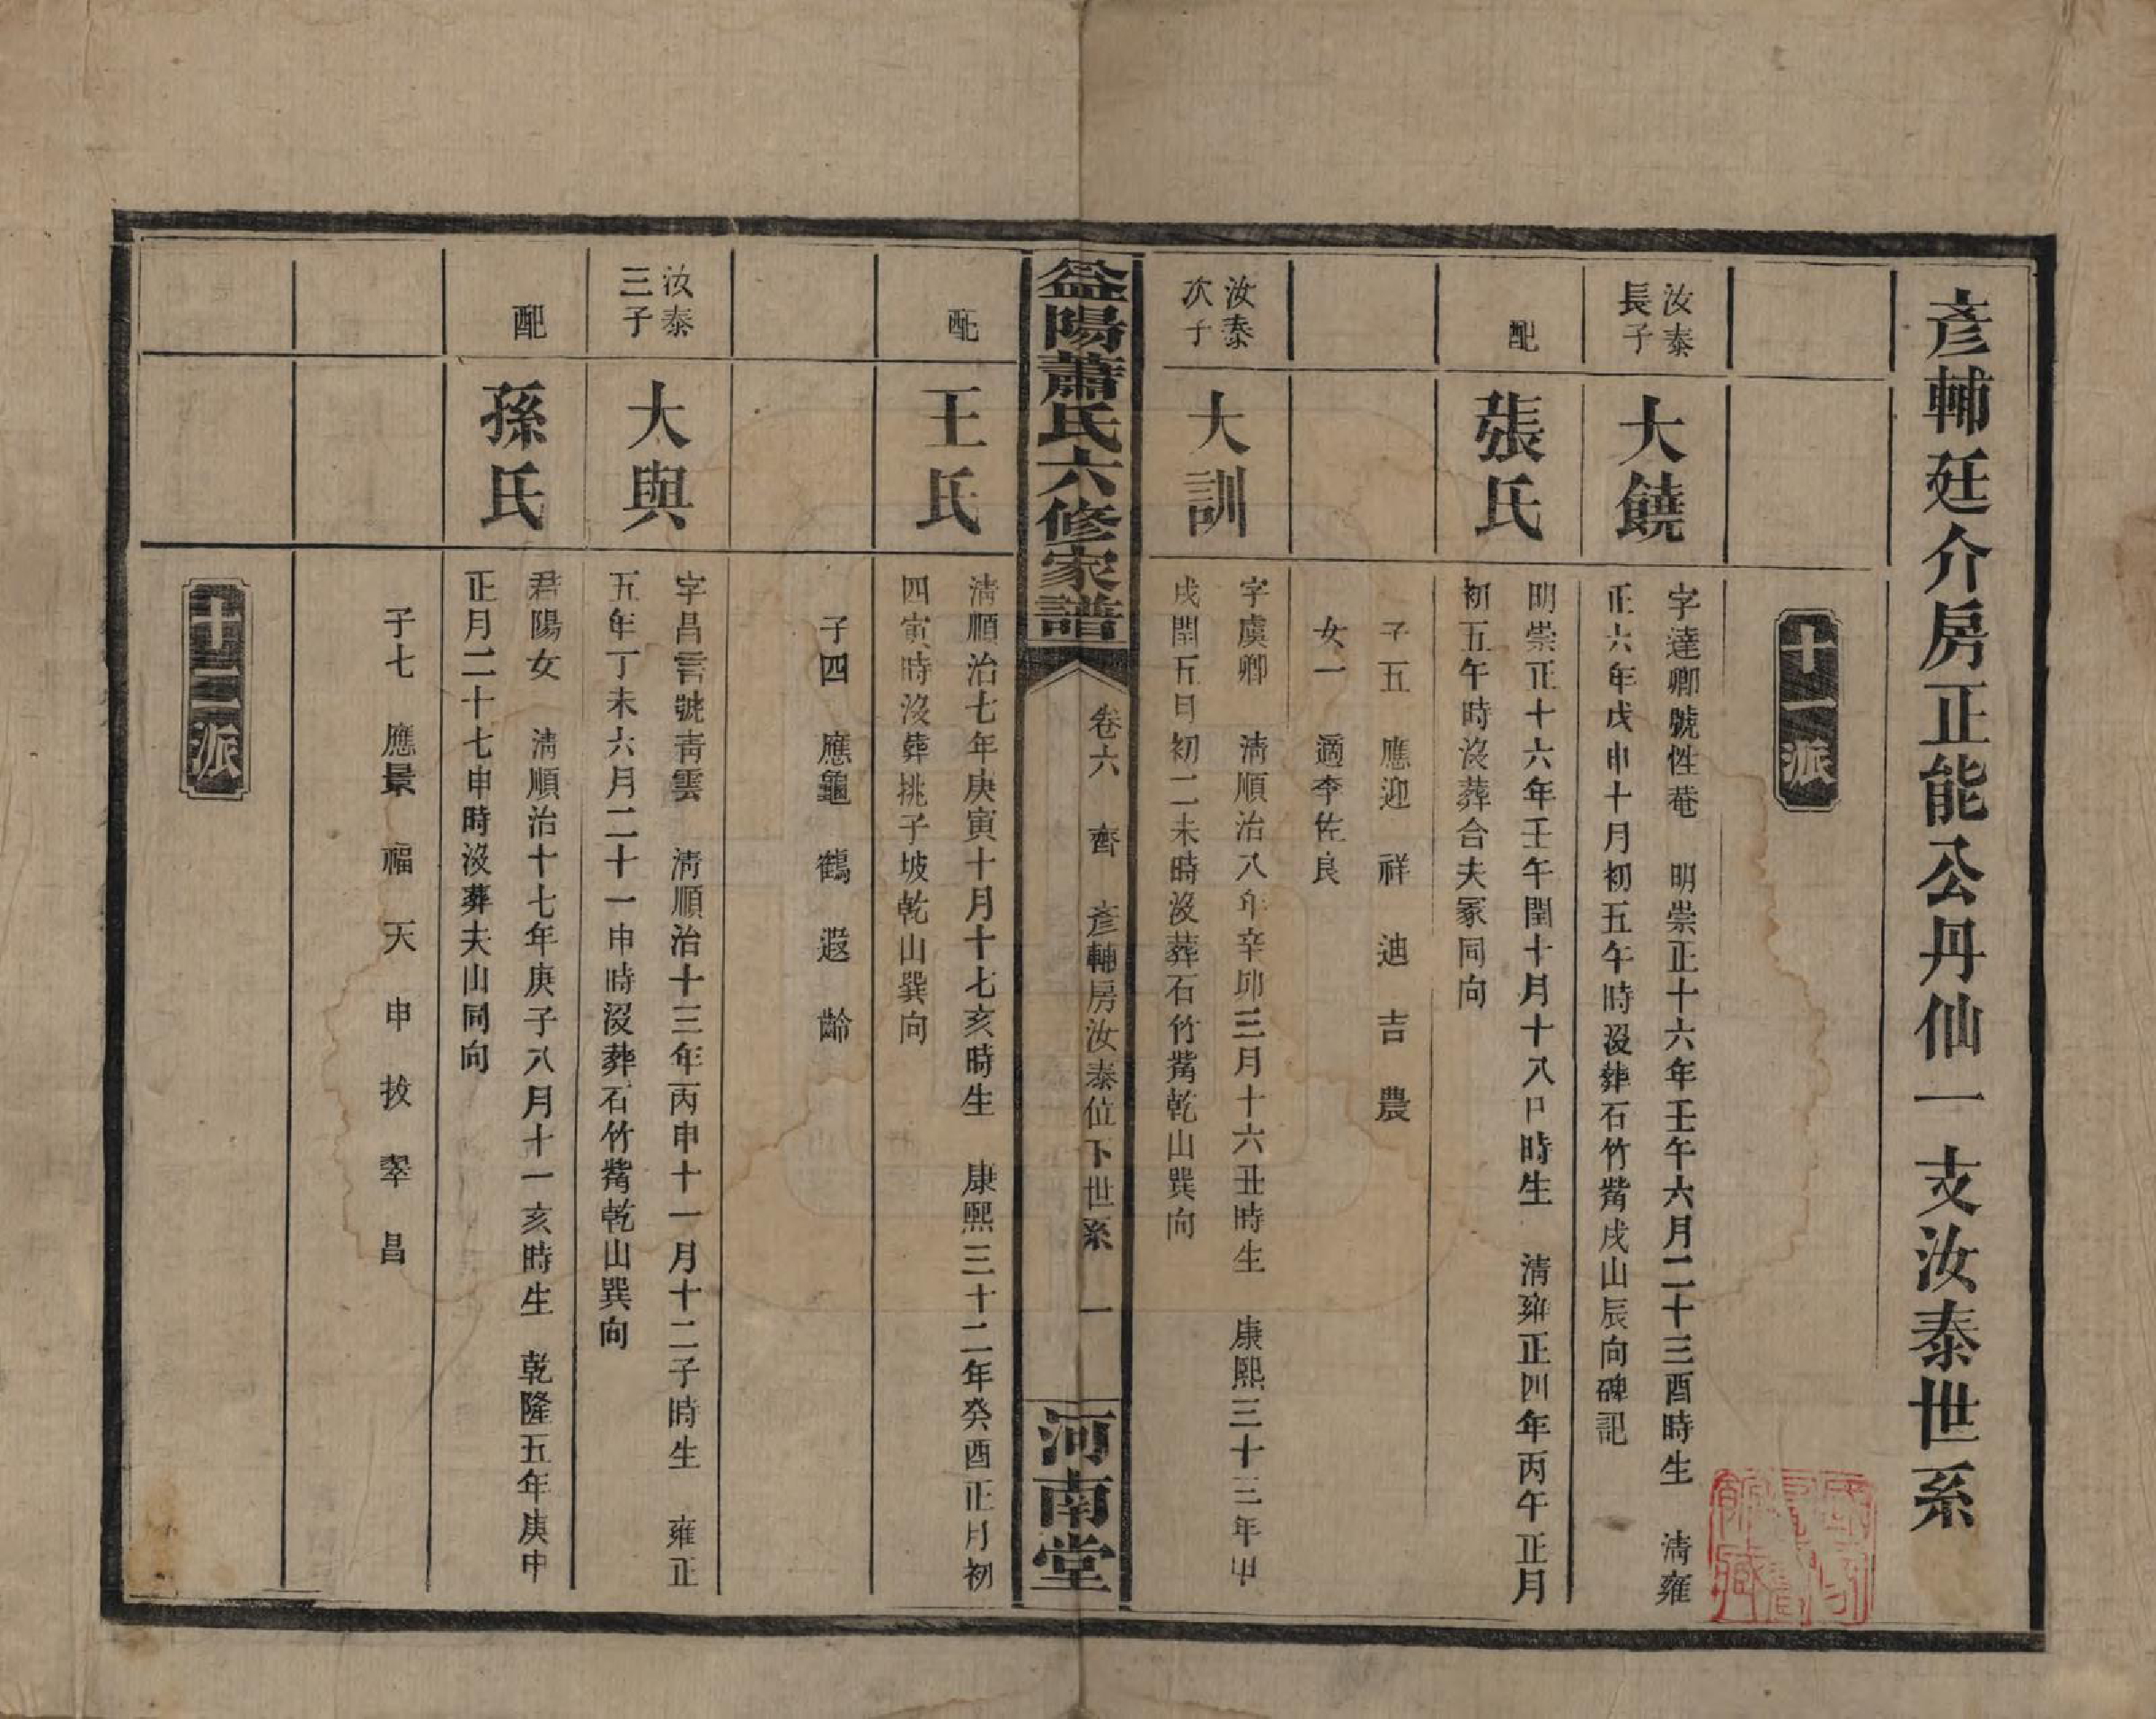 彥輔廷介房正能公丹仙一支汝泰世系
十一派
汝泰
長子
大饒
字達卿號性菴　明崇正十六年壬午六月二十三酉時生　清雍
正六年戊申十月初五午時沒葬石竹觜戌山辰向碑記
配
張氏
明崇正十六年壬午閏十月十八日時生　清雍正四年丙午正月
初五午時沒葬合夫冢同向
子五　應迎　祥　迪　吉　農
女一　適李佐良
汝泰
次子
大訓
字虞卿　清順治八年辛卯三月十六丑時生　康熙三十三年甲
戌閏五月初二未時沒葬石竹觜乾山巽向
益陽蕭氏六修家譜
卷六　齊　彥輔房汝泰位下世系　一
河南堂
配
王氏
清順治七年庚寅十月十七亥時生　康熙三十二年癸酉正月初
四寅時沒葬挑子坡乾山巽向
子四　應龜　鶴　遐　齡
汝泰
三子
大與
字昌言號青雲　清順治十三年丙申十一月十二子時生　雍正
五年丁未六月二十一申時沒葬石竹觜乾山巽向
配
孫氏
君陽女　清順治十七年庚子八月十一亥時生　乾隆五年庚申
正月二十七申時沒葬夫山同向
子七　應景　福　天　申　拔　翠　昌
十二派